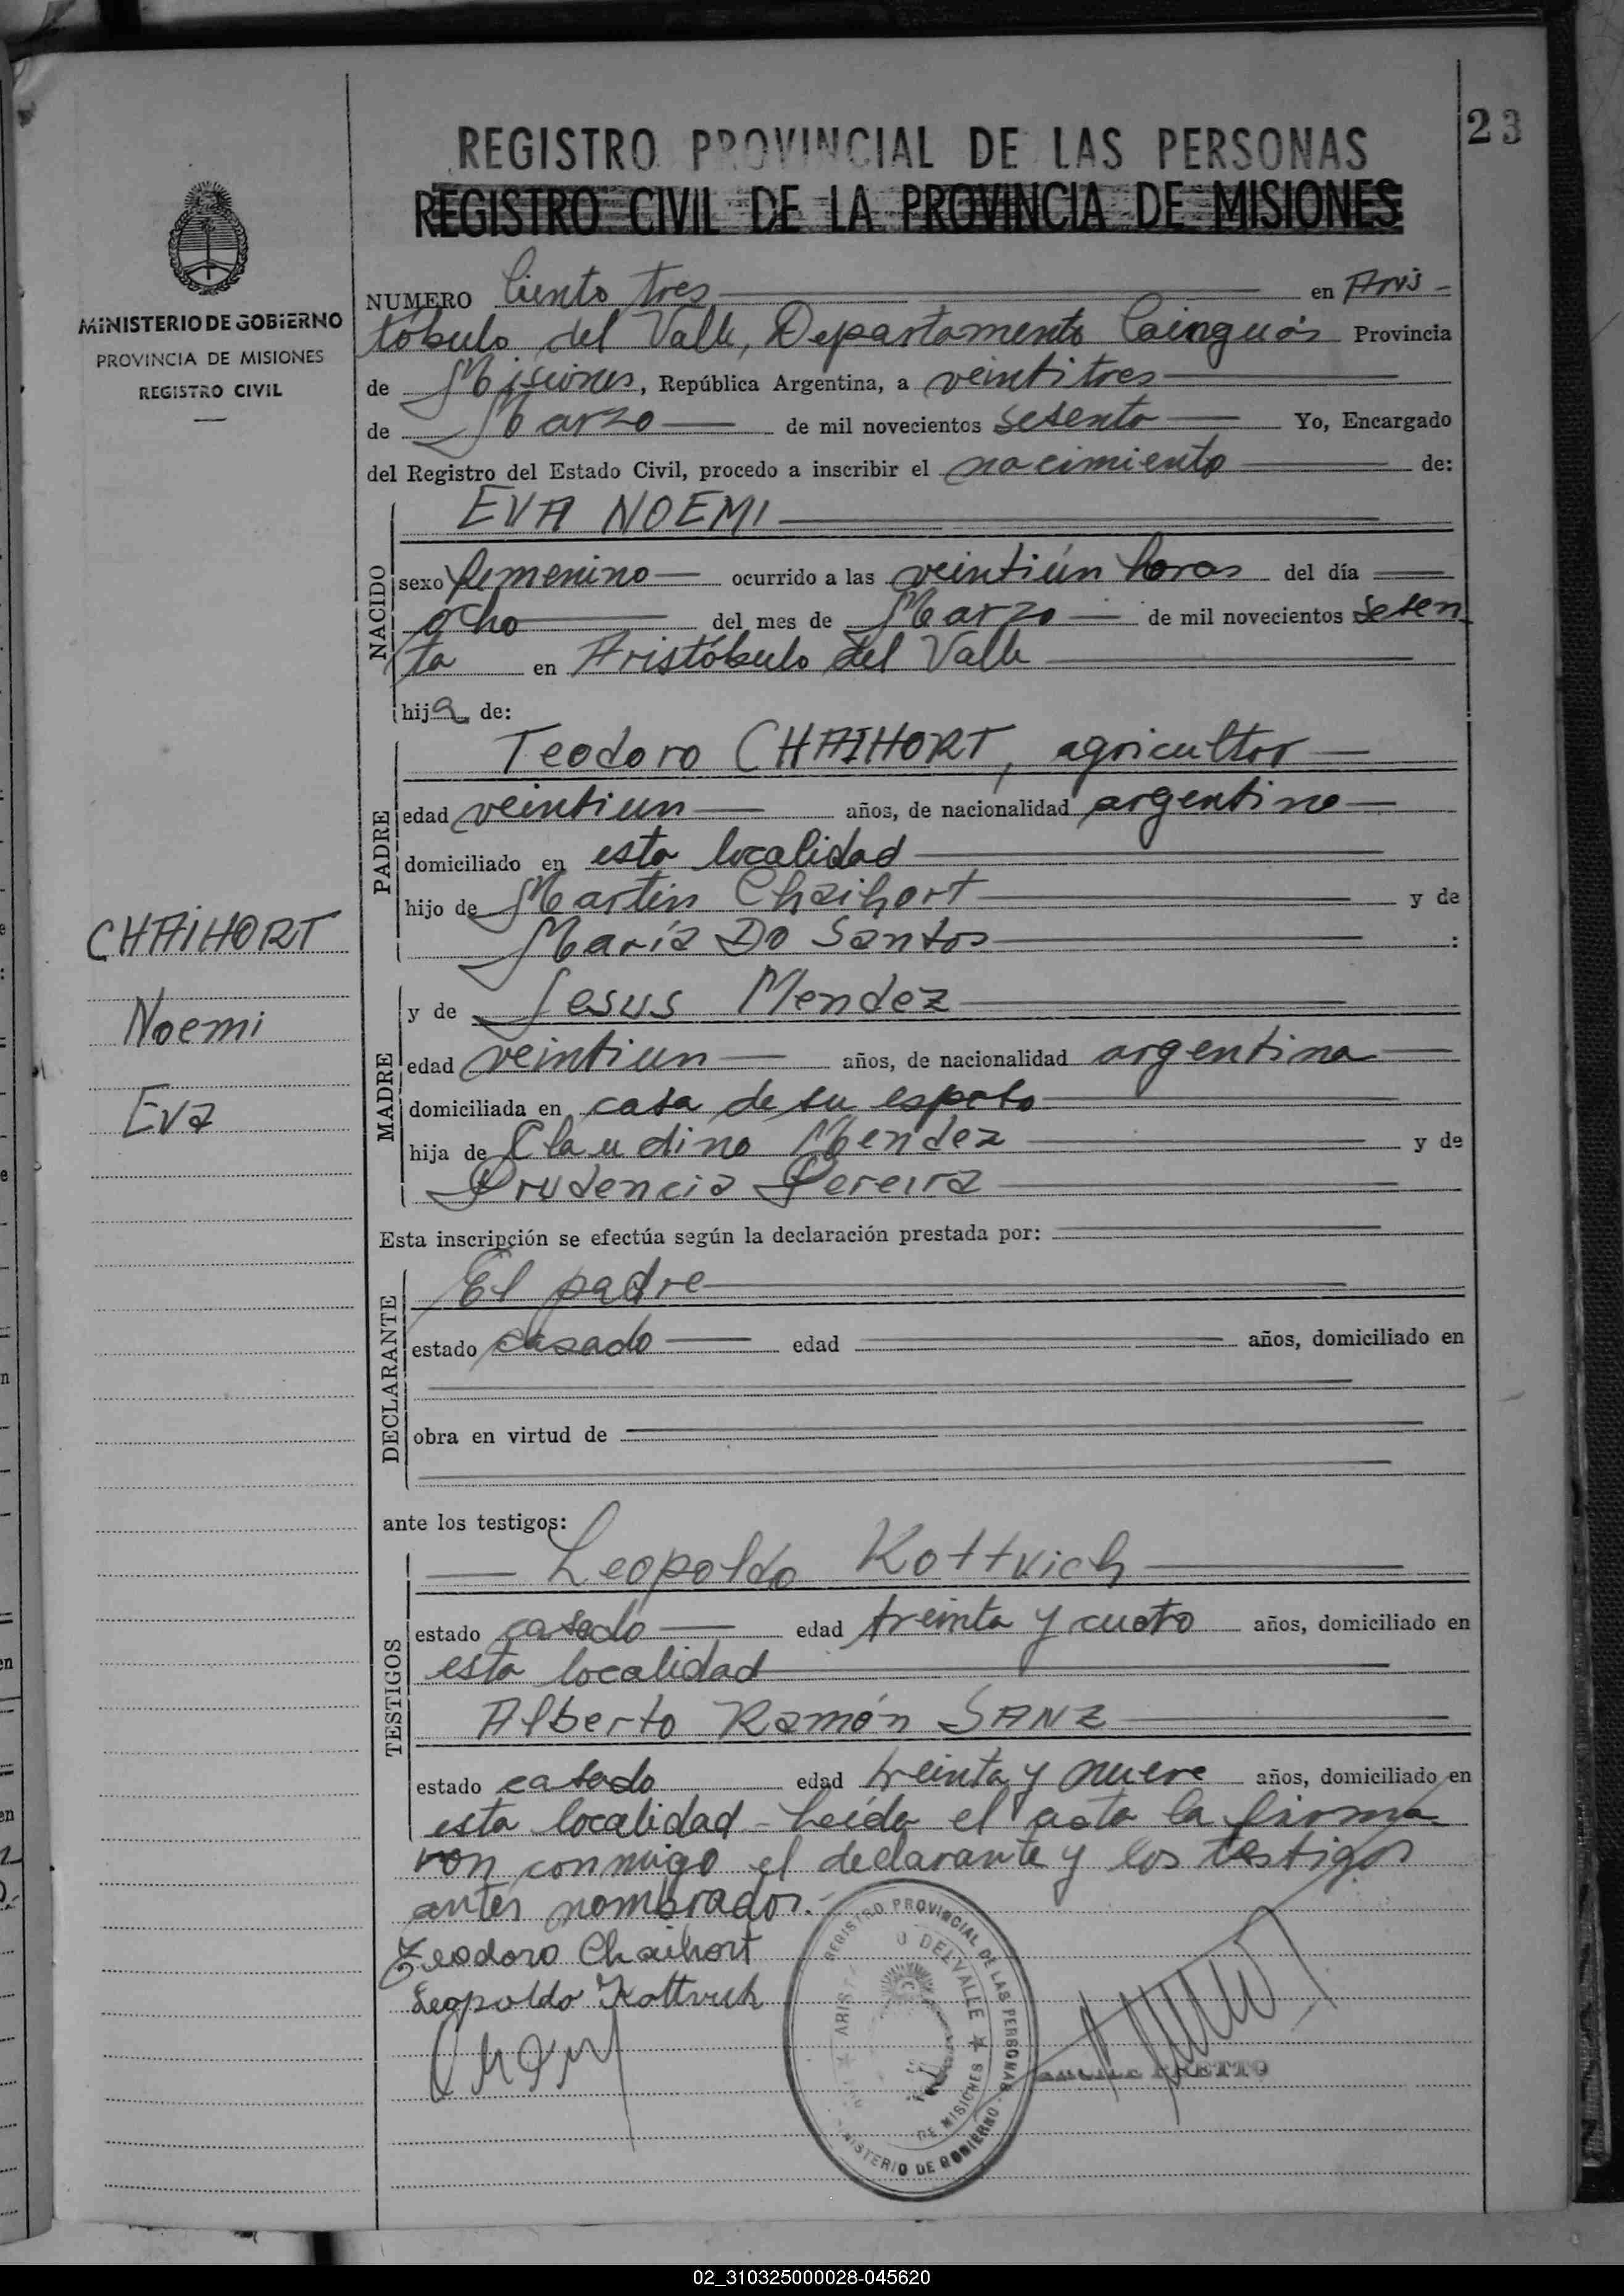 23
REGISTRO PROVINCIAL DE LAS PERSONAS
REGISTRO CIVIL DE LA PROVINCIA DE MISIONES
MINISTERIO DE GOBIERNO
PROVINCIA DE MISIONES
REGISTRO CIVIL
CHAIHORT
Noemi
Eva
NUMERO Ciento tres en Aris-
tóbulo del Valle, Departamento Cainguás Provincia
de Misiones, República Argentina, a veintitres
de Marzo de mil novecientos sesenta Yo, Encargado
del Registro del Estado Civil, procedo a inscribir el nacimiento de:
NACIDO
EVA NOEMI
sexo femenino ocurrido a las veintiún horas del día
ocho del mes de Marzo de mil novecientos sesen
ta en Aristóbulo del Valle
hija de:
PADRE
Teodoro CHAIHORT, agricultor
edad veintiun años, de nacionalidad argentino
domiciliado en esta localidad
hijo de Martin Chaihort y de
María Do Santos :
MADRE
y de Jesus Mendez
edad veintiun años, de nacionalidad argentina
domiciliada en casa de su esposo
hija de Claudino Mendez y de
Prudencia Pereira
Esta inscripción se efectúa según la declaración prestada por:
DECLARANTE
El padre
estado casado edad años, domiciliado en
obra en virtud de
ante los testigos:
TESTIGOS
Leopoldo Kottvich
estado casado edad treinta y cuatro años, domiciliado en
esta localidad
Alberto Ramón SANZ
estado casado edad treinta y nueve años, domiciliado en
esta localidad - Leída el acta la firma
ron conmigo el declarante y los testigos
antes nombrados.-
Teodoro Chaihort
Leopoldo Kottvich
REGISTRO PROVINCIAL DE LAS PERSONAS
DEL VALLE
DE MISIONES
MINISTERIO DE GOBIERNO
02_310325000028-045620